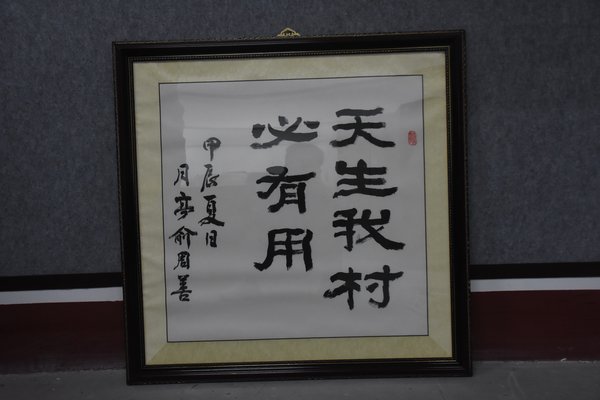 天生我村
必有用
甲辰夏日
月亭俞君善